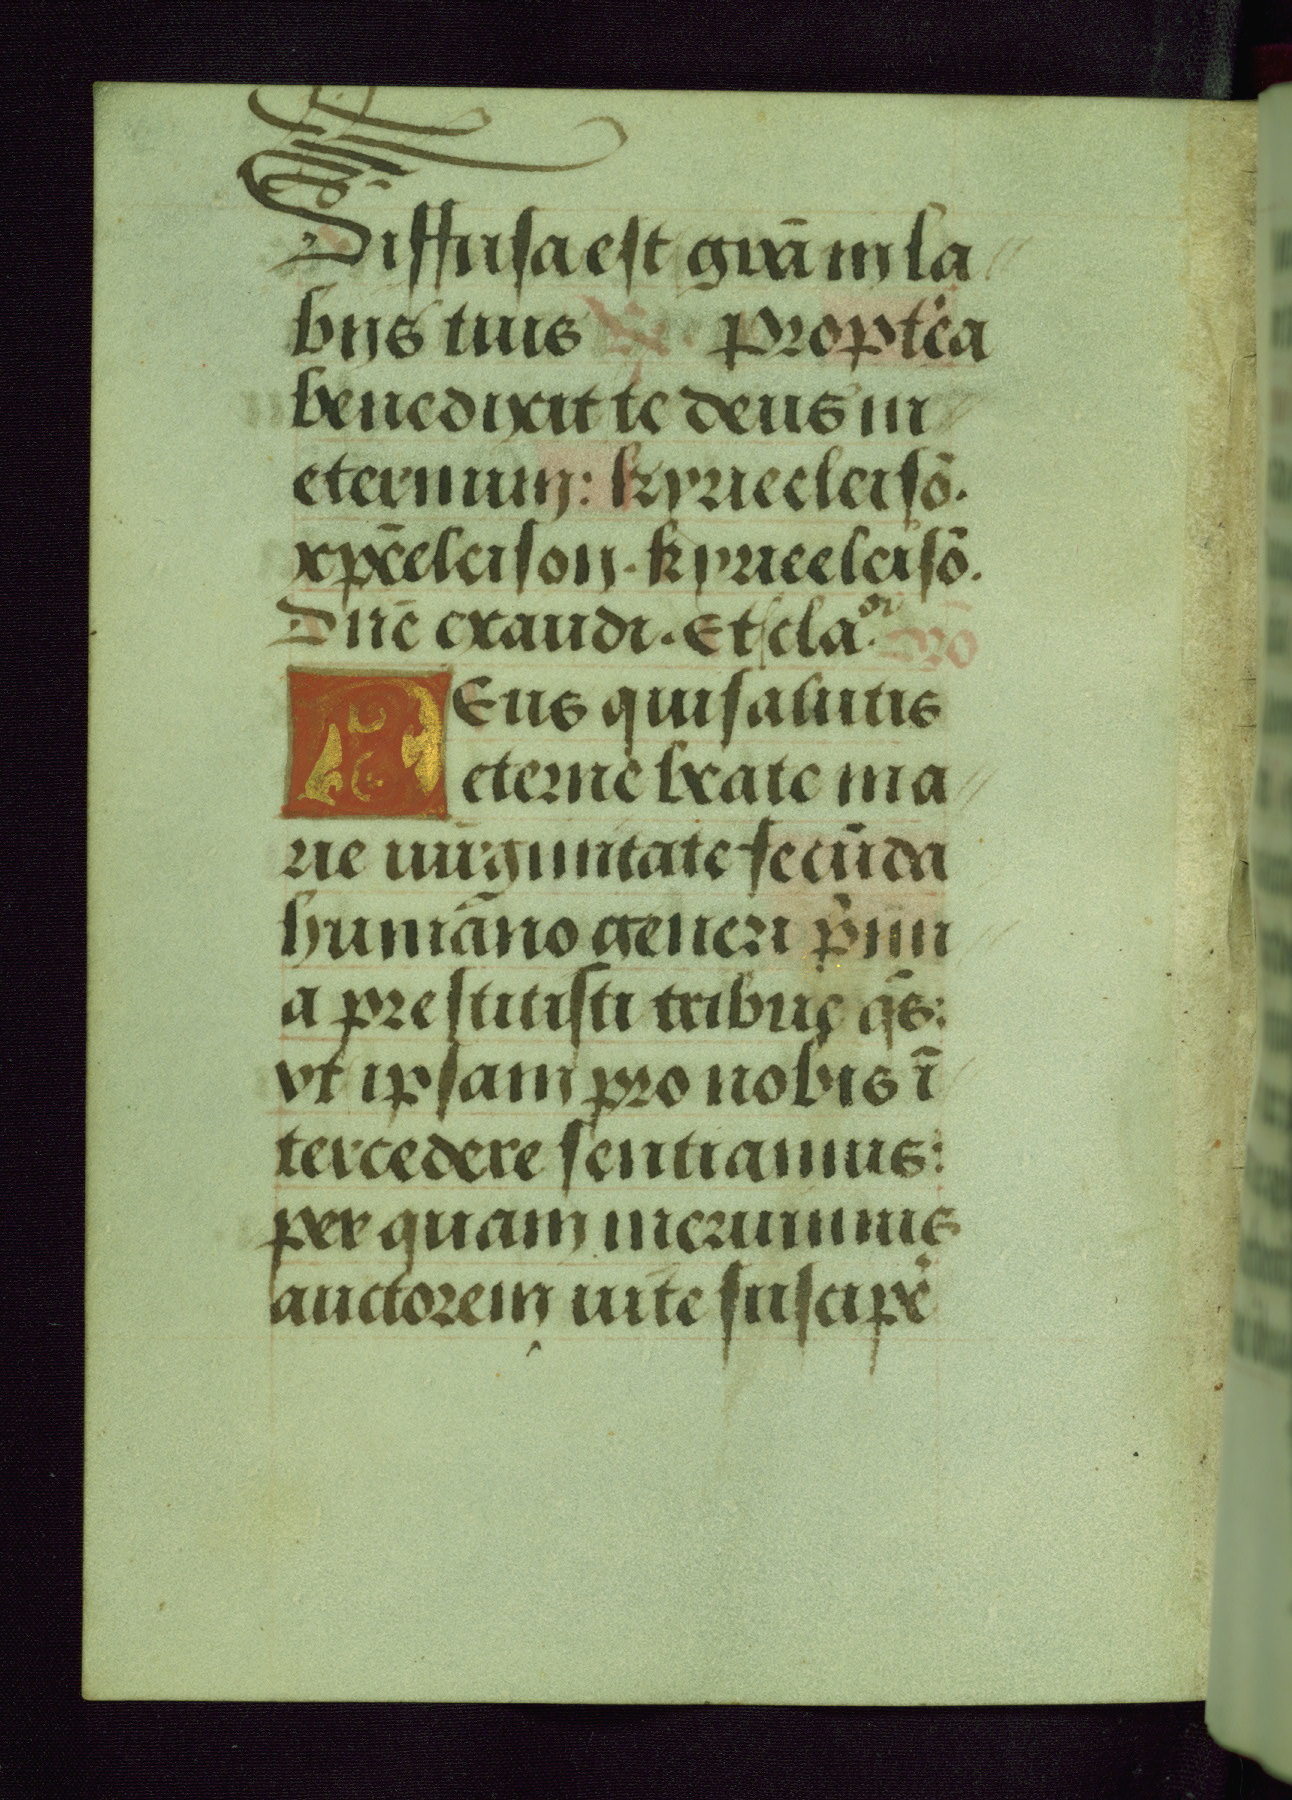 Diffusa est grã in la
bijs tuis ℟. propt̃ea
benedixit te deus in
eternum: kyrieeleisõ.
xp̃eeleison. kyrieeleisõ.
Dñe exaudi. Et cla.ᵒʳ oro
DEus qui salutis
eterne beate ma
rie uirginitate fecũda
humãno generi p̃mi
a prestitisti tribue q̃s:
vt ipsam pro nobis ĩ
tercedere sentiamus:
per quam meruimus
auctorem uite suscipe᷒